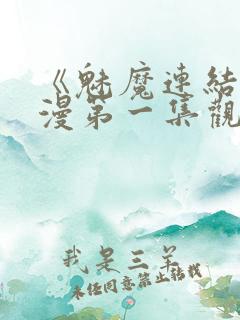 《魅魔連結
漫第一集觀
我是三羊
未经同意禁止转载